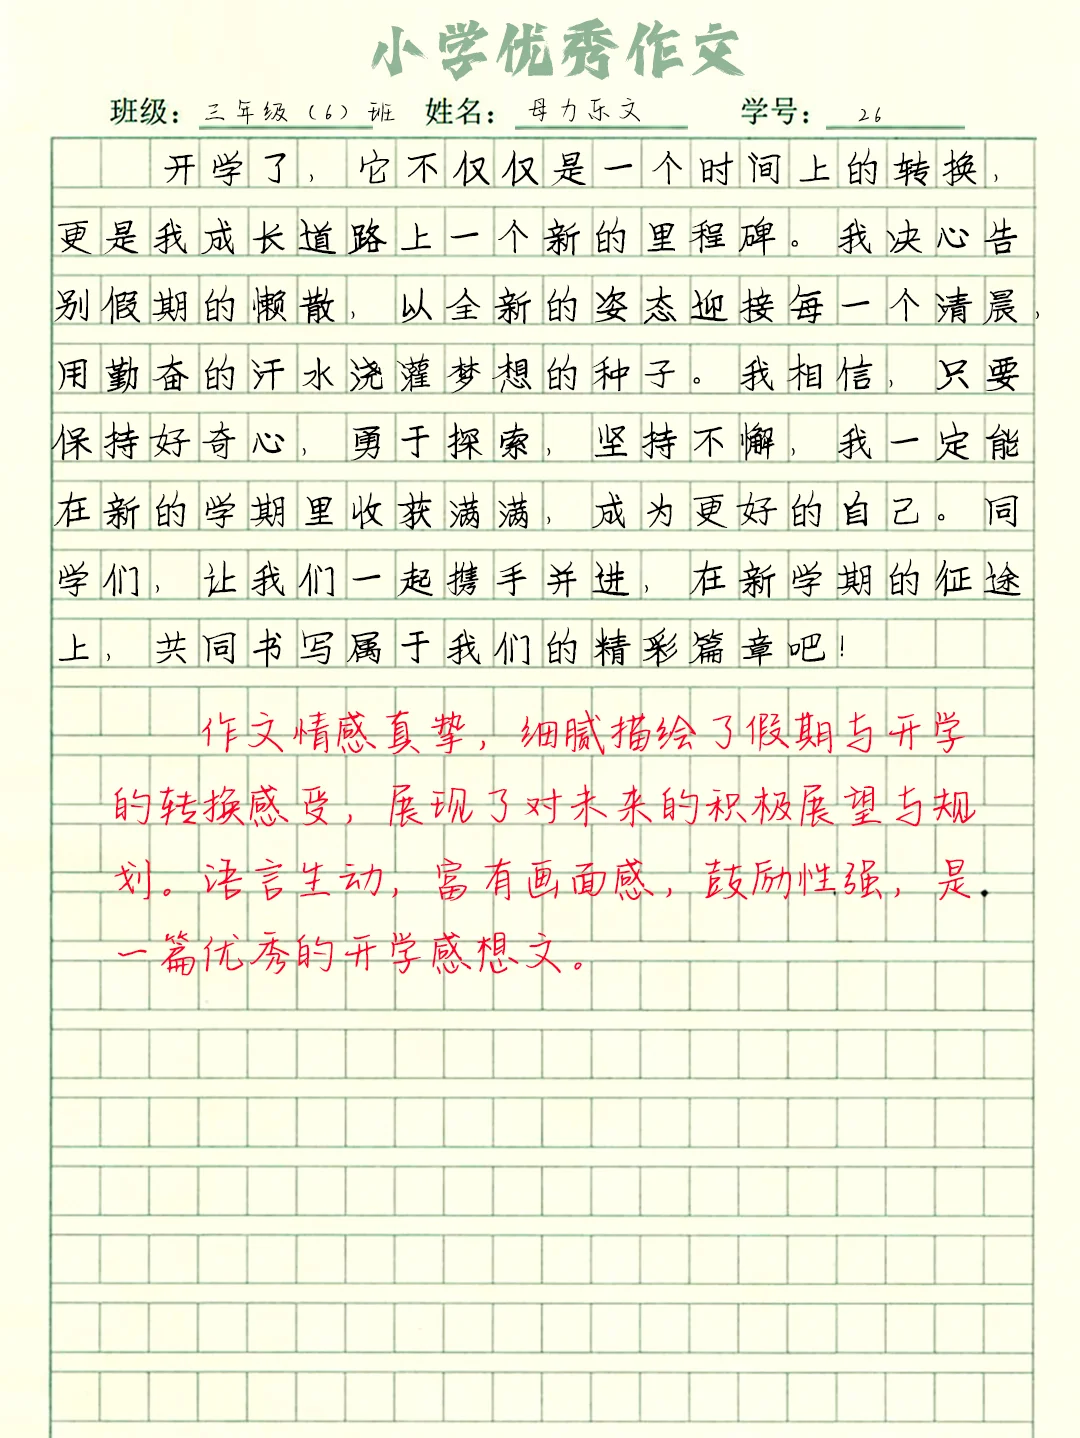 小学优秀作文
班级：三年级（6）班 姓名：母力乐文 学号：26
开学了，它不仅仅是一个时间上的转换，
更是我成长道路上一个新的里程碑。我决心告
别假期的懒散，以全新的姿态迎接每一个清晨，
用勤奋的汗水浇灌梦想的种子。我相信，只要
保持好奇心，勇于探索，坚持不懈，我一定能
在新的学期里收获满满，成为更好的自己。同
学们，让我们一起携手并进，在新学期的征途
上，共同书写属于我们的精彩篇章吧！
作文情感真挚，细腻描绘了假期与开学
的转换感受，展现了对未来的积极展望与规
划。语言生动，富有画面感，鼓励性强，是
一篇优秀的开学感想文。